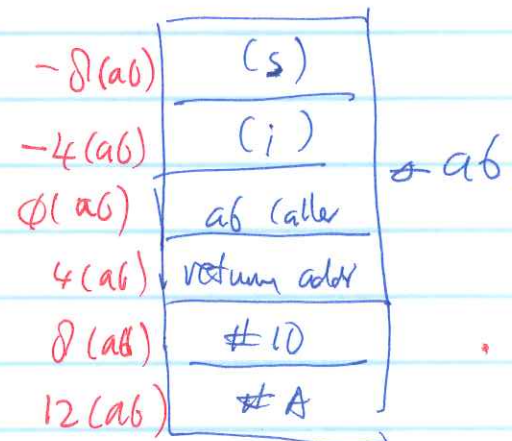 -8(a6) (s)
-4(a6) (i)
← a6
0(a6) a6 caller
4(a6) return addr
8(a6) #10
12(a6) #A